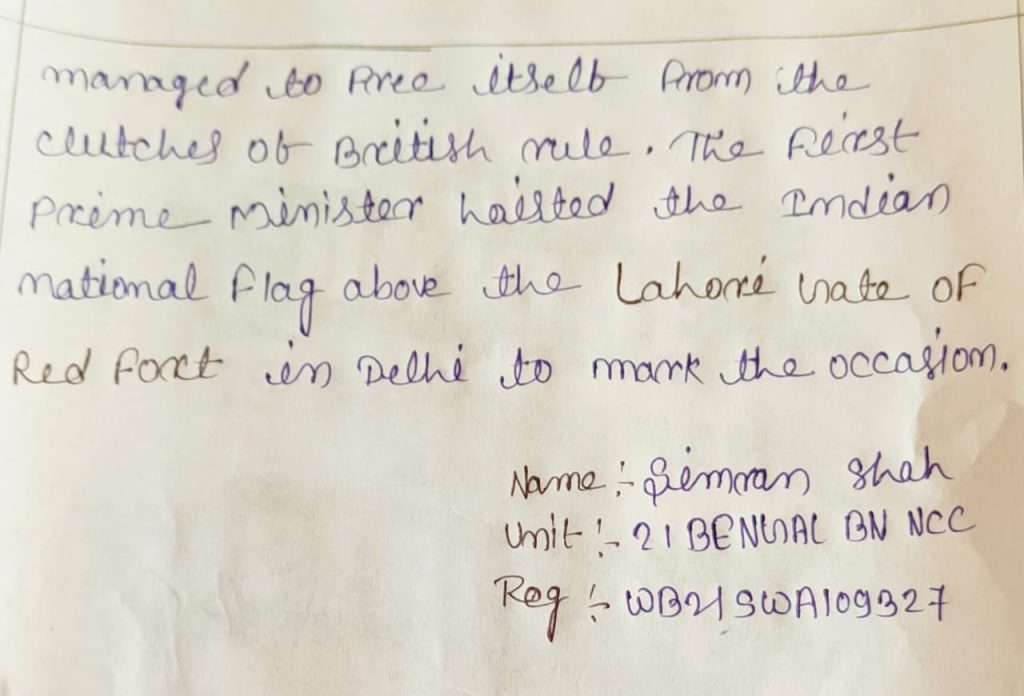 managed to free itself from the
clutches of British rule. The first
Prime Minister haisted the Indian
national flag above the Lahore Gate of
Red fort in Delhi to mark the occasion.
Name :- Simran Shah
Unit :- 21 BENGAL BN NCC
Reg :- WB21SWA109327